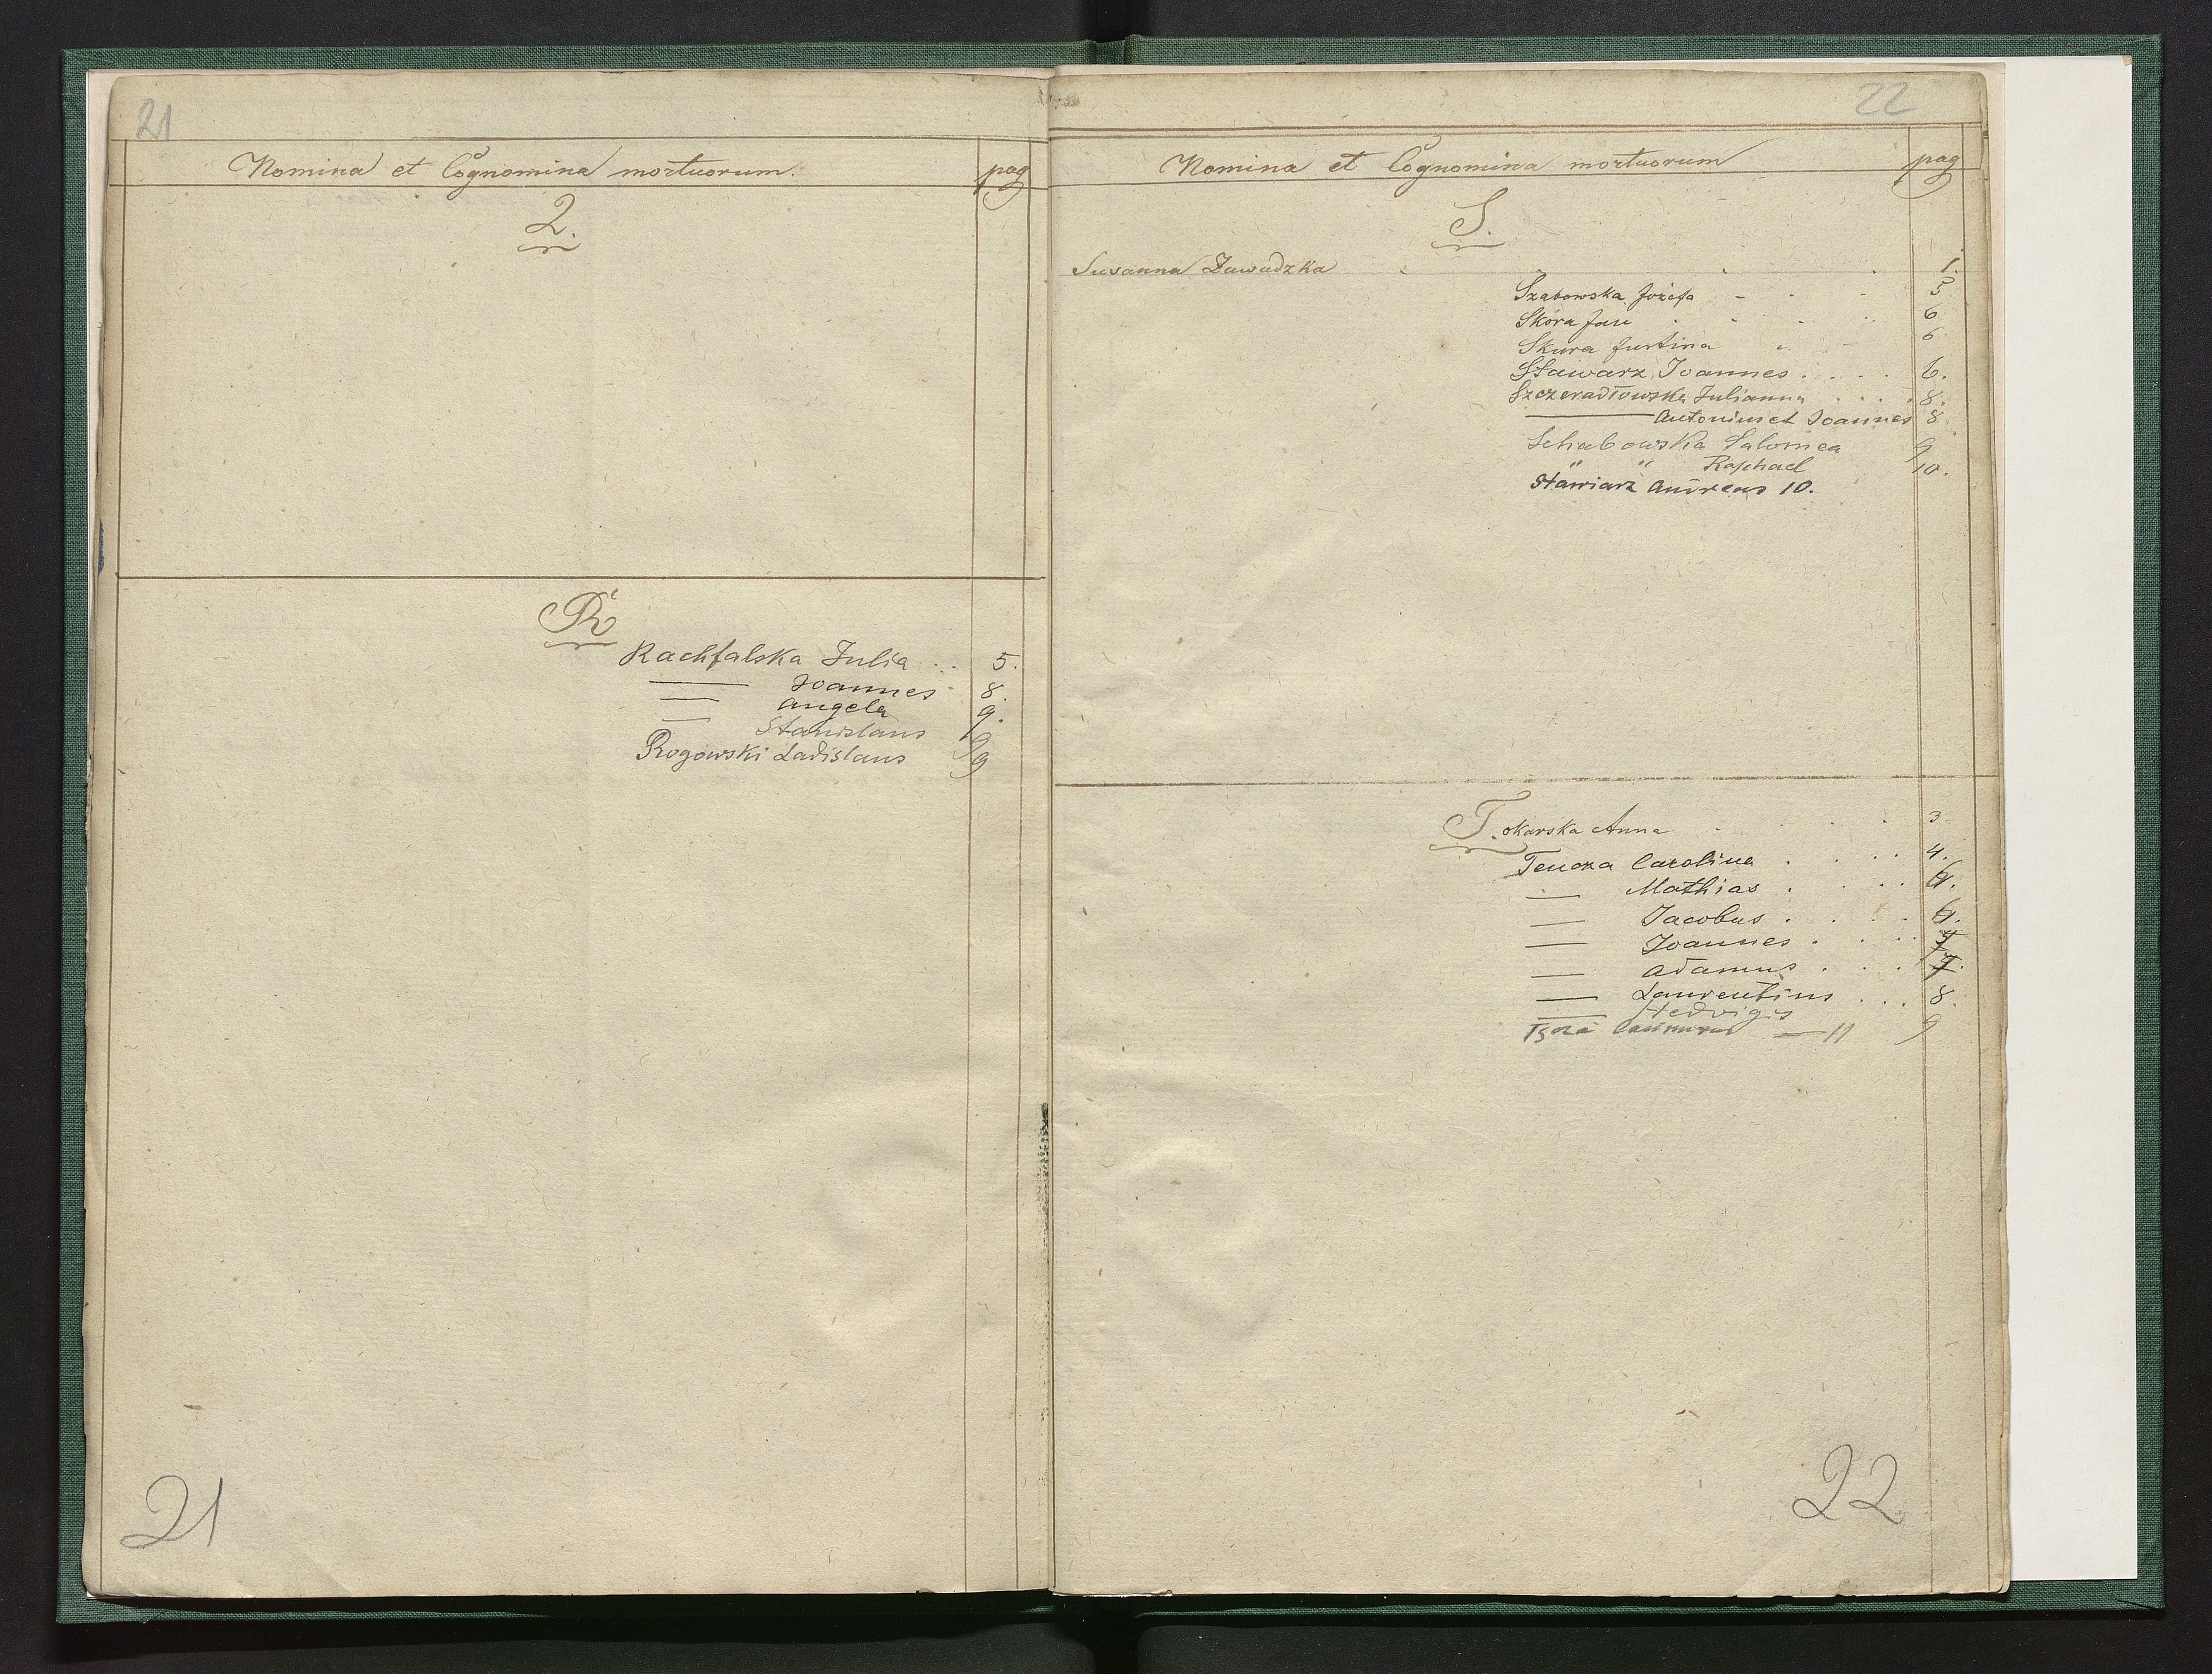 21
Nomina et Cognomina mortuorum. pag
Q.
R
Rachfalska Julia .. 5.
—— Joannes 8.
—— Angela 9.
—— Stanislaus 9
Rogowski Ladislaus 9
21
22
Nomina et Cognomina mortuorum pag
S.
Susanna Zawadzka . . . . 1.
Szabowska Józefa - - - 5
Skóra Jan . - . .. 6
Skura Justina . - 6
Stawarz Joannes . . . . 6.
Szczeradłowska Julianna . . . . 8.
—— Antonius et Joannes 8.
Schabowska Salomea 9
" " Raphael 10.
Stawiarz Andreas 10.
T.okarska Anna . . . . 3
Tencza Carolina . . . . 4.
— Mathias . . . . 6.
— Jacobus . . . . 6.
— Joannes . . . . 7
— Adamus . . . . 7.
— Laurentius . . . 8.
— Hedvigis 9
Casimirus — 11
22